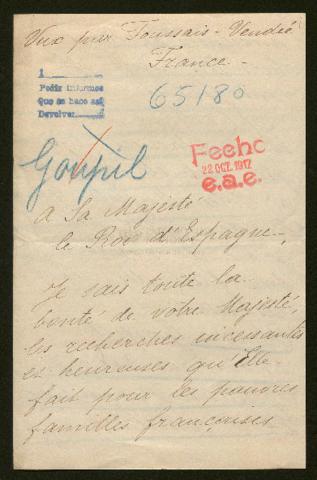 Vix par Foussais - Vendée
France -
1
Pedir informes
Que se hace así
Devolver
65180
Goupil
Fecho
22 OCT. 1917
e.a.e.
à Sa Majesté
le Roi d'Espagne -,
Je sais toute la
bonté de votre Majesté,
les recherches incessantes
et heureuses qu'Elle
fait pour les pauvres
familles françaises